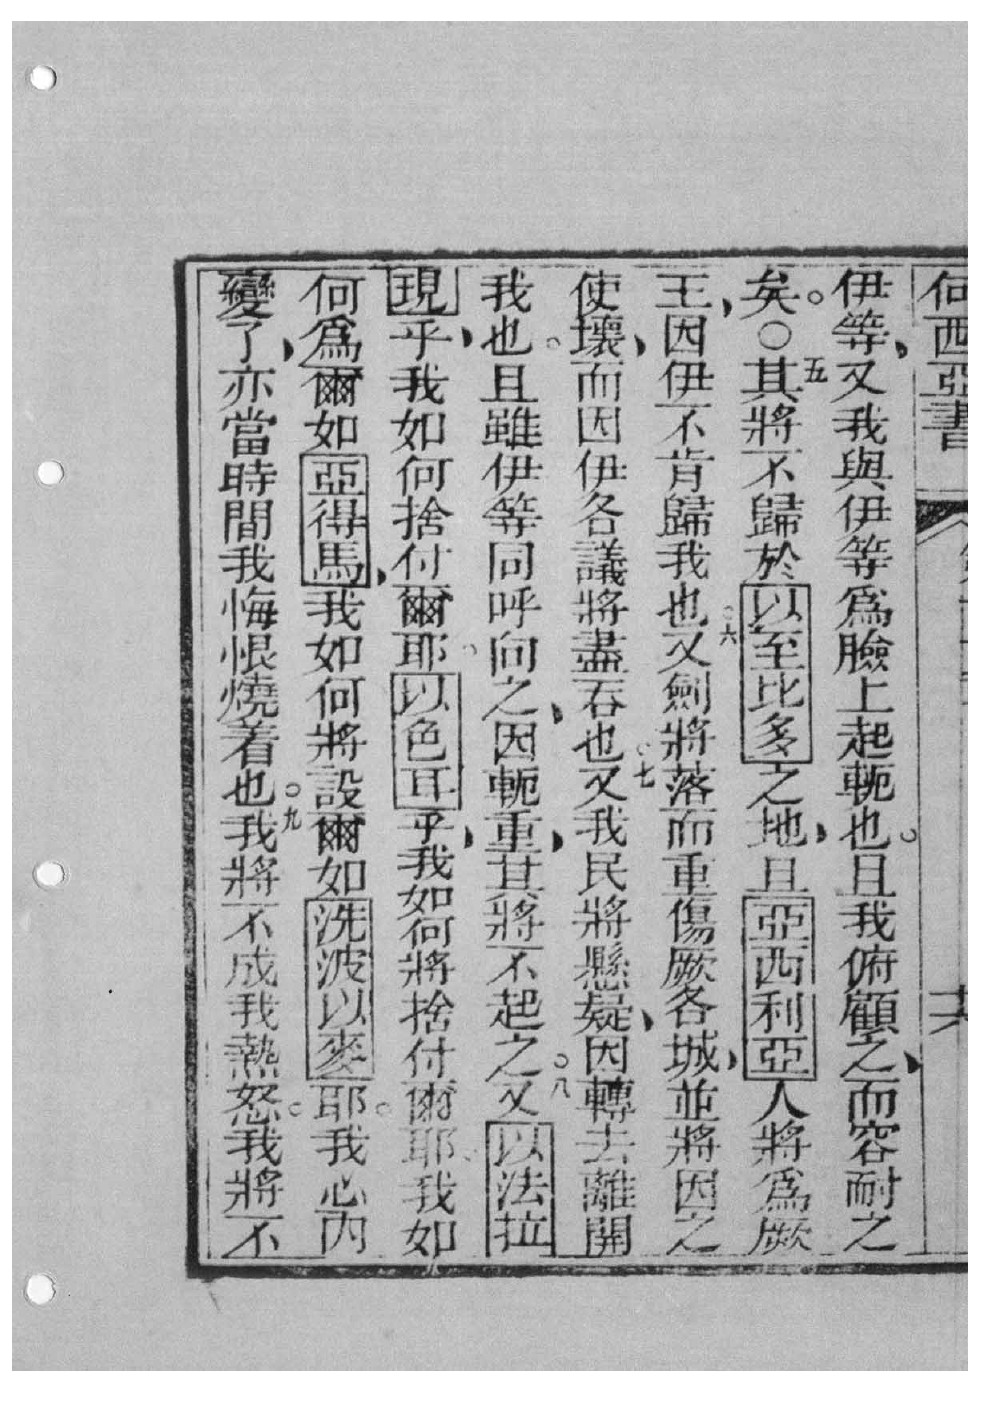 何西亞書
伊等、又我與伊等爲臉上起軛也。且我俯顧之、而容耐之
矣。○五其將不歸於以至比多之地、且亞西利亞人將爲厥
王、因伊不肯歸我也。六又劍將落而重傷厥各城、並將因之
使壞、而因伊各議將盡吞也。七又我民將懸疑、因轉去離開
我也。且雖伊等同呼向之、因軛重、其將不起之。八又以法拉
現乎、我如何捨付爾耶。以色耳乎、我如何將捨付爾耶。我如
何爲爾如亞得馬、我如何將設爾如洗波以麥耶。我心內
變了、亦當時間我悔恨燒着也。九我將不成我熱怒。我將不